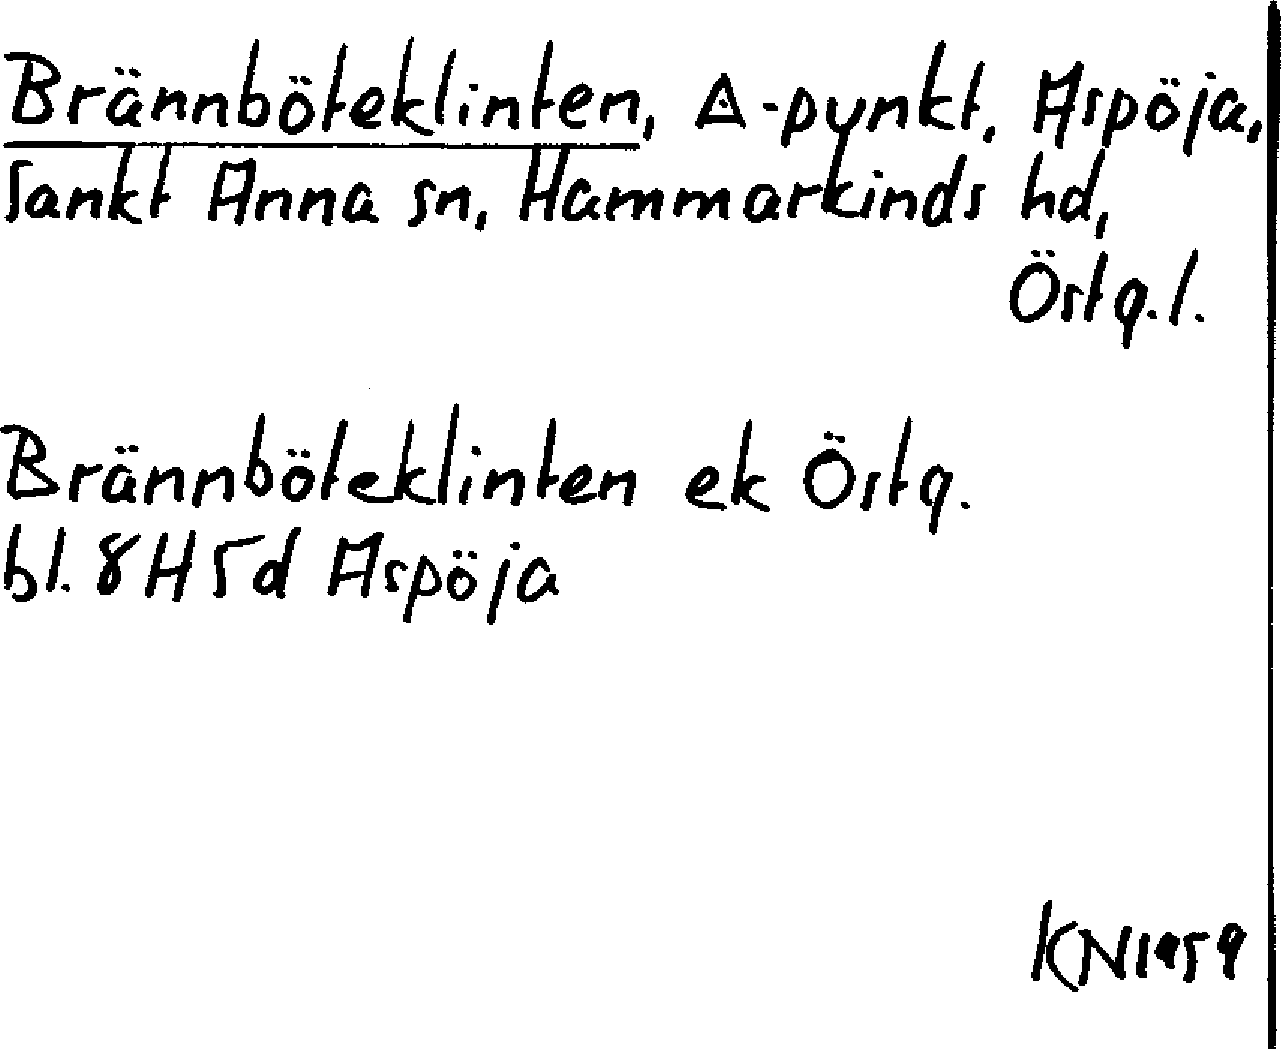 Brännböteklinten, △-punkt, Aspöja,
Sankt Anna sn, Hammarkinds hd,
Östg.l.
Brännböteklinten ek Östg.
bl. 8H5d Aspöja
KN1959